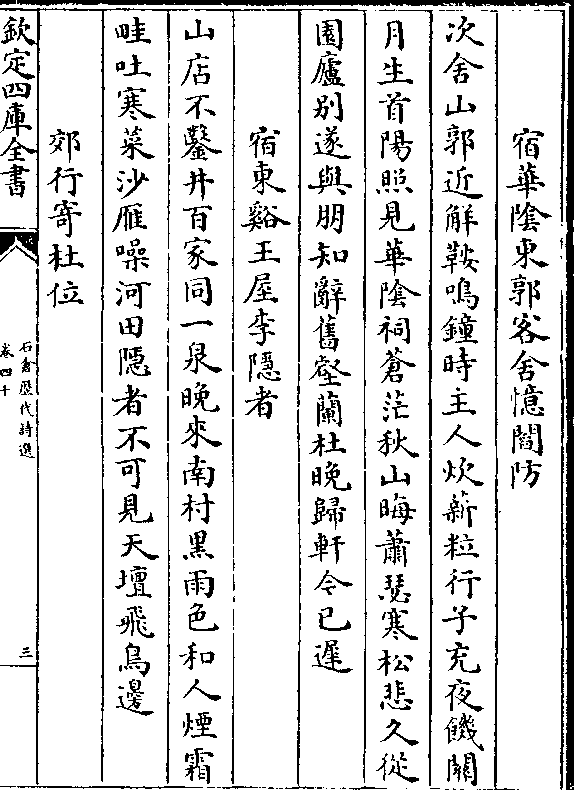 宿華陰東郭客舍憶閻防
次舍山郭近解鞍鳴鐘時主人炊新粒行子充夜饑關
月生首陽照見華陰祠蒼茫秋山晦蕭瑟寒松悲久從
園廬別遂與朋知辭舊壑蘭杜晚歸軒令已遲
宿東谿王屋李隱者
山店不鑿井百家同一泉晚來南村黑雨色和人煙霜
畦吐寒菜沙雁噪河田隱者不可見天壇飛鳥邊
郊行寄杜位
欽定四庫全書
石倉歷代詩選
卷四十
三